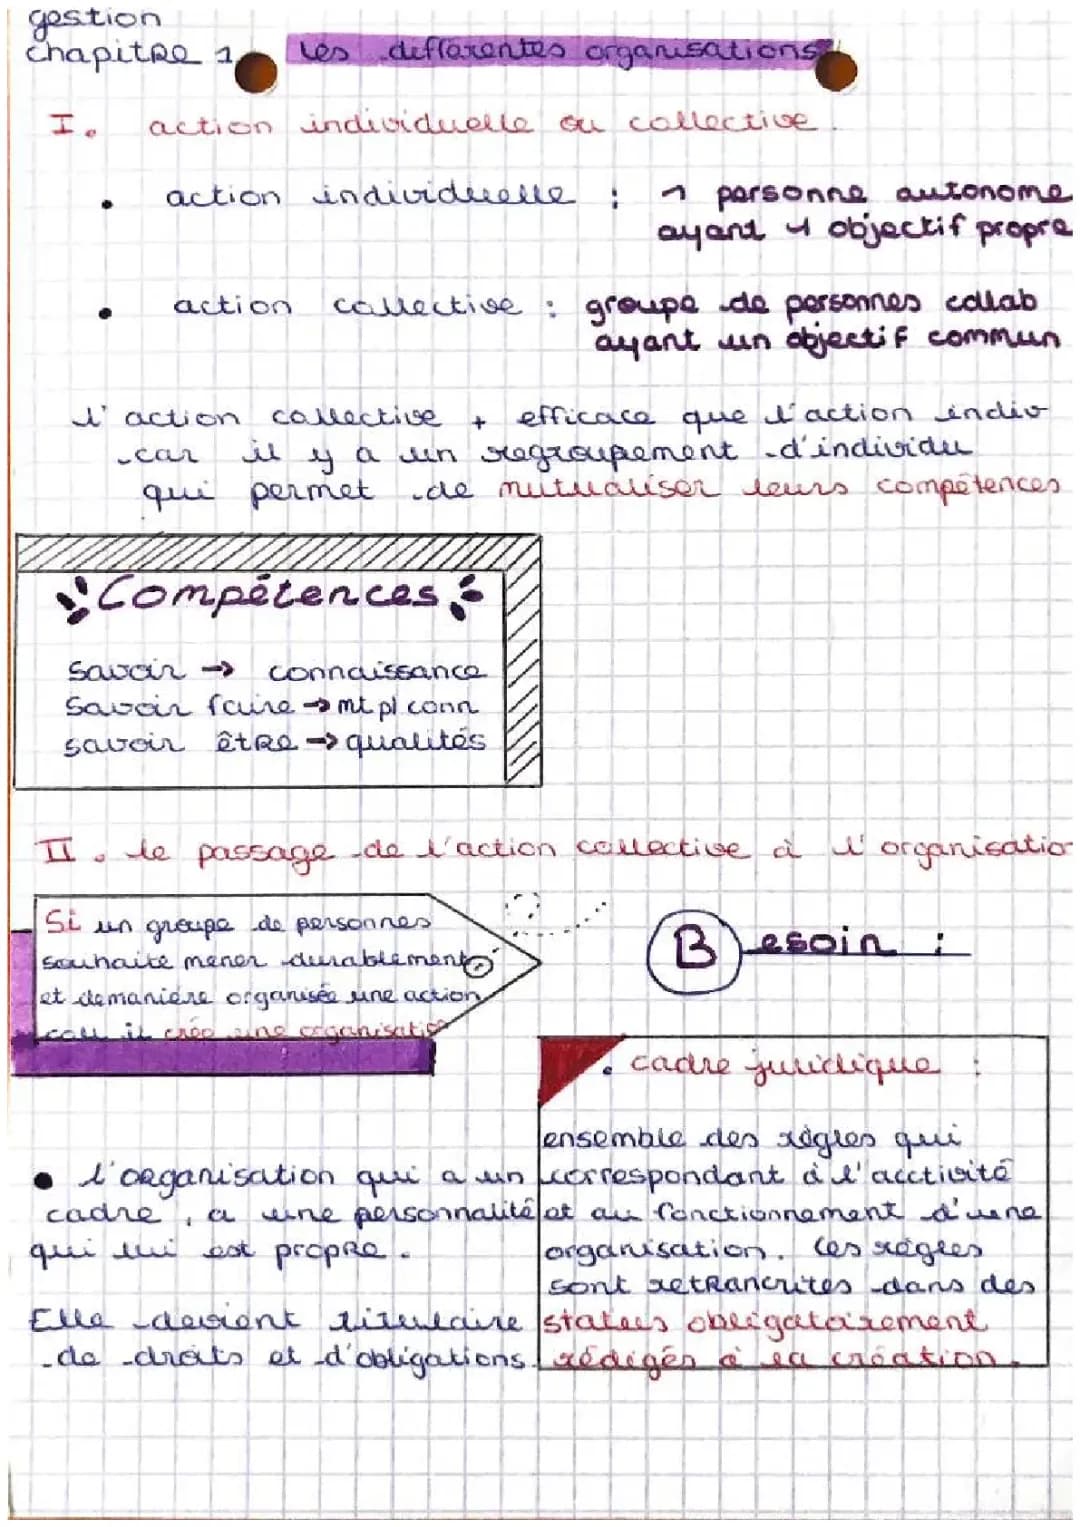 gestion
chapitre 1 les differentes organisations
I. action individuelle ou collective.
• action individuelle : 1 personne autonome
ayant 1 objectif propre
• action collective : groupe de personnes collab
ayant un objectif commun
l'action collective + efficace que l'action indiv
car il y a un regroupement d'individu
qui permet de mutualiser leurs compétences
Compétences
Savoir → connaissance
Savoir faire → mt pl conn
savoir être → qualités
II. le passage de l'action collective à l'organisatio
Si un groupe de personnes
souhaite mener durablement
et demanière organisée une action
coll il crée une organisatio
Besoin :
• cadre juridique :
ensemble des règles qui
correspondant à l'acctivité
et au fonctionnement d'une
organisation. Ces règles
sont retrancrites dans des
status obligatoirement
rédigés à la création.
• l'organisation qui a un
cadre, a une personnalité
qui lui est propre.
Elle devient titulaire
de droits et d'obligations.